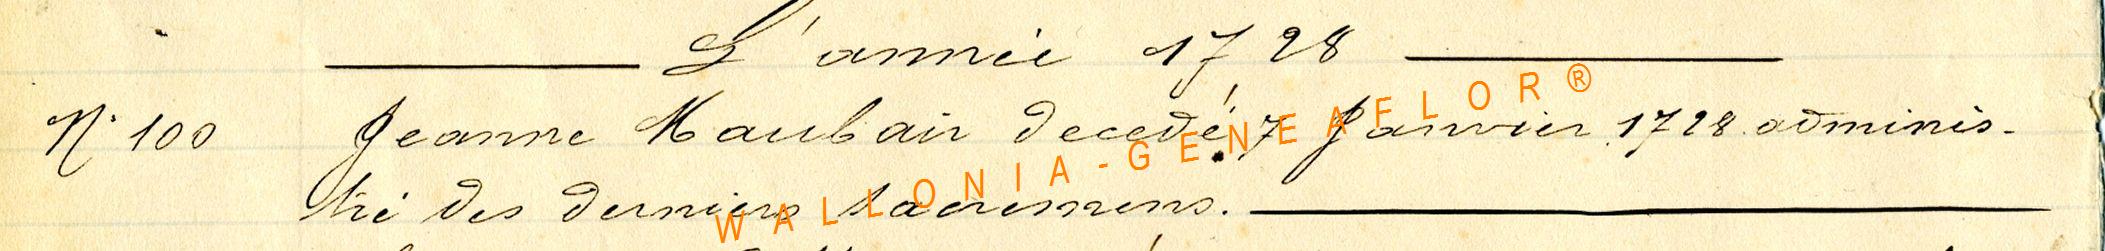 L'année 1728
N° 100 Jeanne Haubair decedé 7 Janvier 1728 adminis-
tré des derniers sacremens.
WALLONIA-GENEAFLOR®